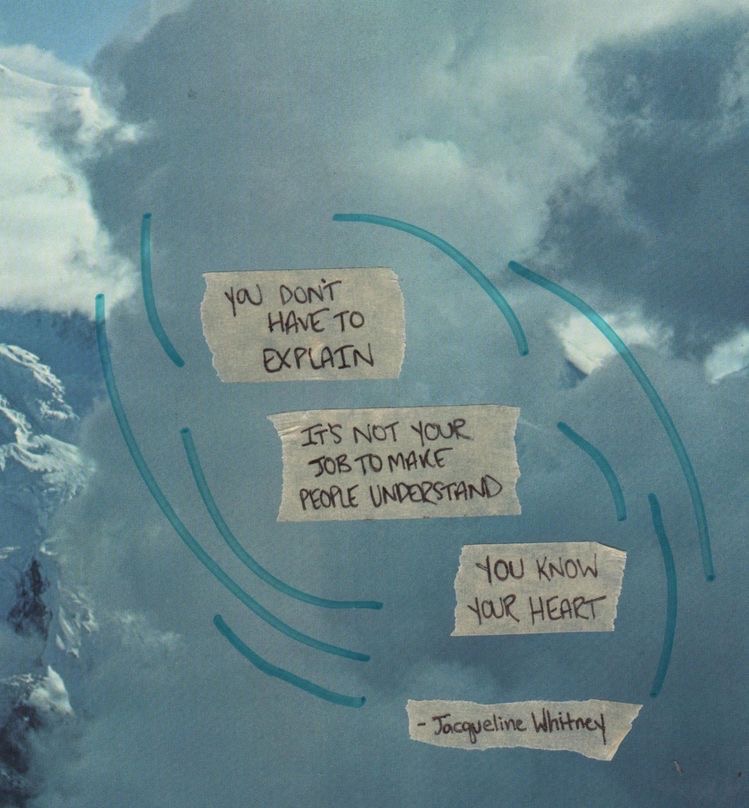 YOU DON'T
HAVE TO
EXPLAIN
IT'S NOT YOUR
JOB TO MAKE
PEOPLE UNDERSTAND
YOU KNOW
YOUR HEART
- Jacqueline Whitney